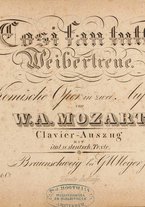 Cosi fan tutt
Weibertreue
komische Oper in zwei Auf
von
W. A. MOZART
Clavier-Auszug
MIT
ital. u. deutsch. Texte.
Braunschweig bei G. M. Meyer